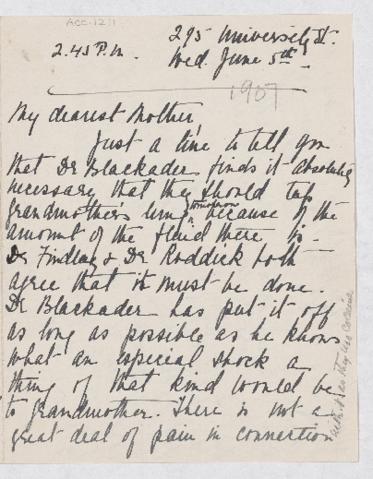 ACC. 1211
295 University St.
2.45 P.M.
Wed. June 5th
1907
My dearest Mother,
Just a line to tell you
that Dr Blackader finds it absolutely
necessary that they should tap
grandmother's lung tomorrow because of the
amount of the fluid there is -
Dr Findlay & Dr Roddick both
agree that it must be done.
Dr Blackader has put it off
as long as possible as he knows
what an especial shock a
thing of that kind would be
to grandmother. There is not a
great deal of pain in connection
as they use cocaine